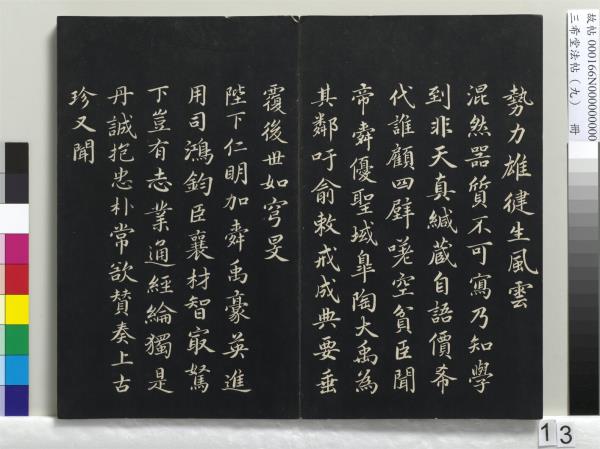 勢力雄健生風雲
混然器質不可寫乃知學
到非天真緘藏自語價希
代誰顧四壁嗟空貧臣聞
帝舜優聖域皐陶大禹為
其鄰吁俞敕戒成典要垂
覆後世如穹旻
陛下仁明加舜禹豪英進
用司鴻鈞臣襄材智寂駑
下豈有志業通經綸獨是
丹誠抱忠朴常欲賛奏上古
珍又聞
故帖 000166N000000000
三希堂法帖（九） 冊
13